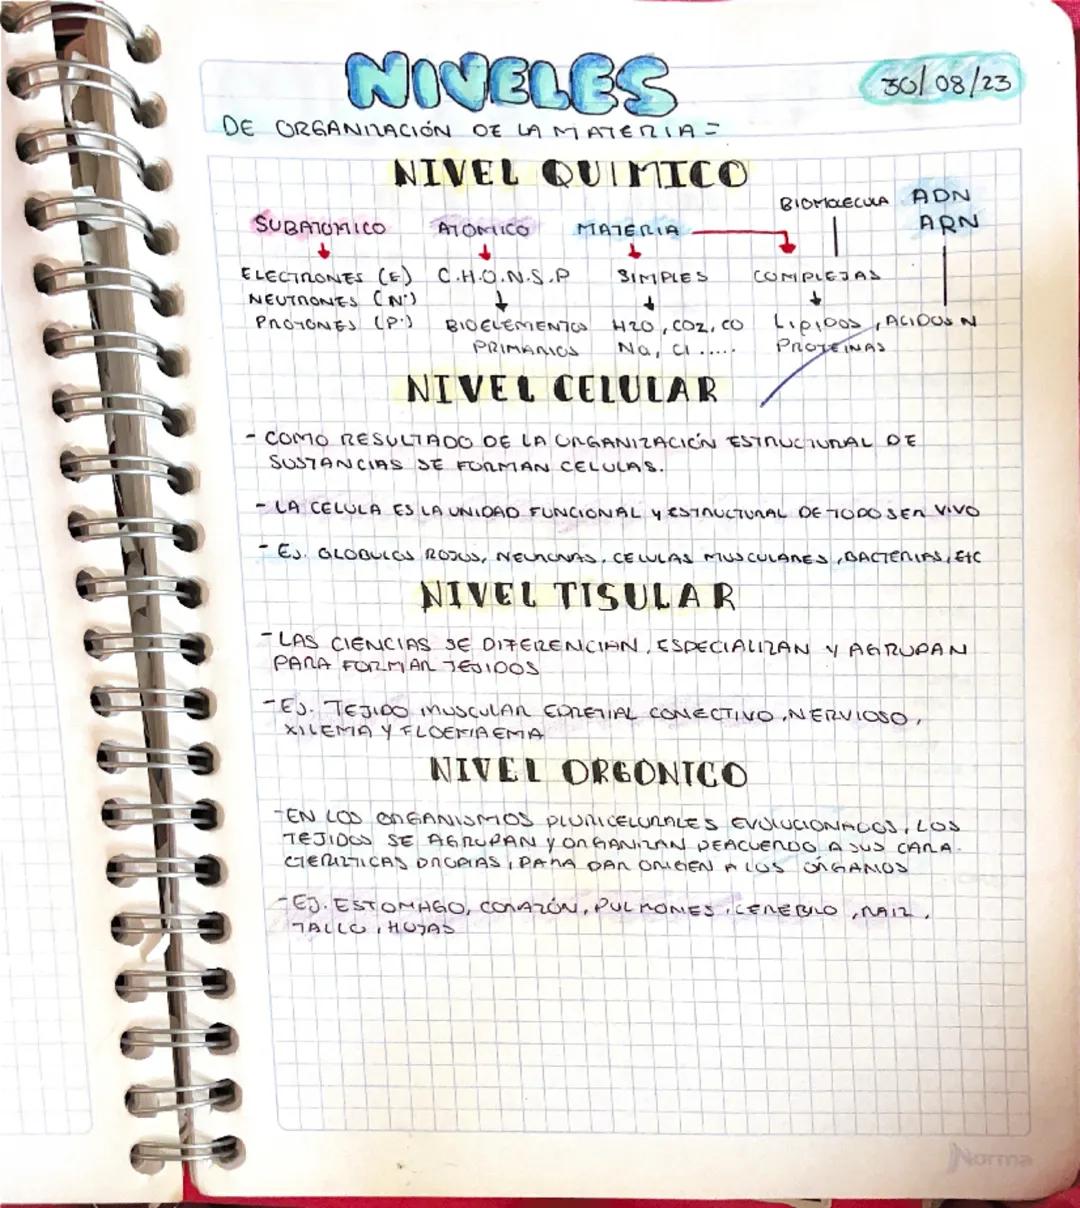 NIVELES
30/08/23
DE ORGANIZACIÓN DE LA MATERIA=
NIVEL QUIMICO
BIOMOLECULA ADN
ARN
SUBATOMICO ATOMICO MATERIA
ELECTRONES (E) C.H.O.N.S.P SIMPLES COMPLEJAS
NEUTRONES (N°)
PROTONES (P.) BIOELEMENTOS H2O, CO2, CO LIPIDOS, ACIDOS N
PRIMARIOS Na, Cl ..... PROTEINAS
NIVEL CELULAR
- COMO RESULTADO DE LA ORGANIZACIÓN ESTRUCTURAL DE
SUSTANCIAS SE FORMAN CELULAS.
- LA CELULA ES LA UNIDAD FUNCIONAL Y ESTRUCTURAL DE TODO SER VIVO
- EJ. GLOBULOS ROJOS, NEURONAS, CELULAS MUSCULARES, BACTERIAS, ETC
NIVEL TISULAR
- LAS CIENCIAS SE DIFERENCIAN, ESPECIALIZAN Y AGRUPAN
PARA FORMAR TEJIDOS
- EJ. TEJIDO MUSCULAR EPRETIAL CONECTIVO, NERVIOSO,
XILEMA Y FLOEMAEMA
NIVEL ORGONICO
- EN LOS ORGANISMOS PLURICELURALES EVOLUCIONADOS, LOS
TEJIDOS SE AGRUPAN Y ORGANIZAN DEACUERDO A SUS CARA-
CTERIZTICAS PROPIAS, PARA DAR ORIGEN A LOS ÓRGANOS
- EJ. ESTOMAGO, CORAZÓN, PULMONES, CEREBRO, RAIZ,
TALLO, HOJAS
Norma